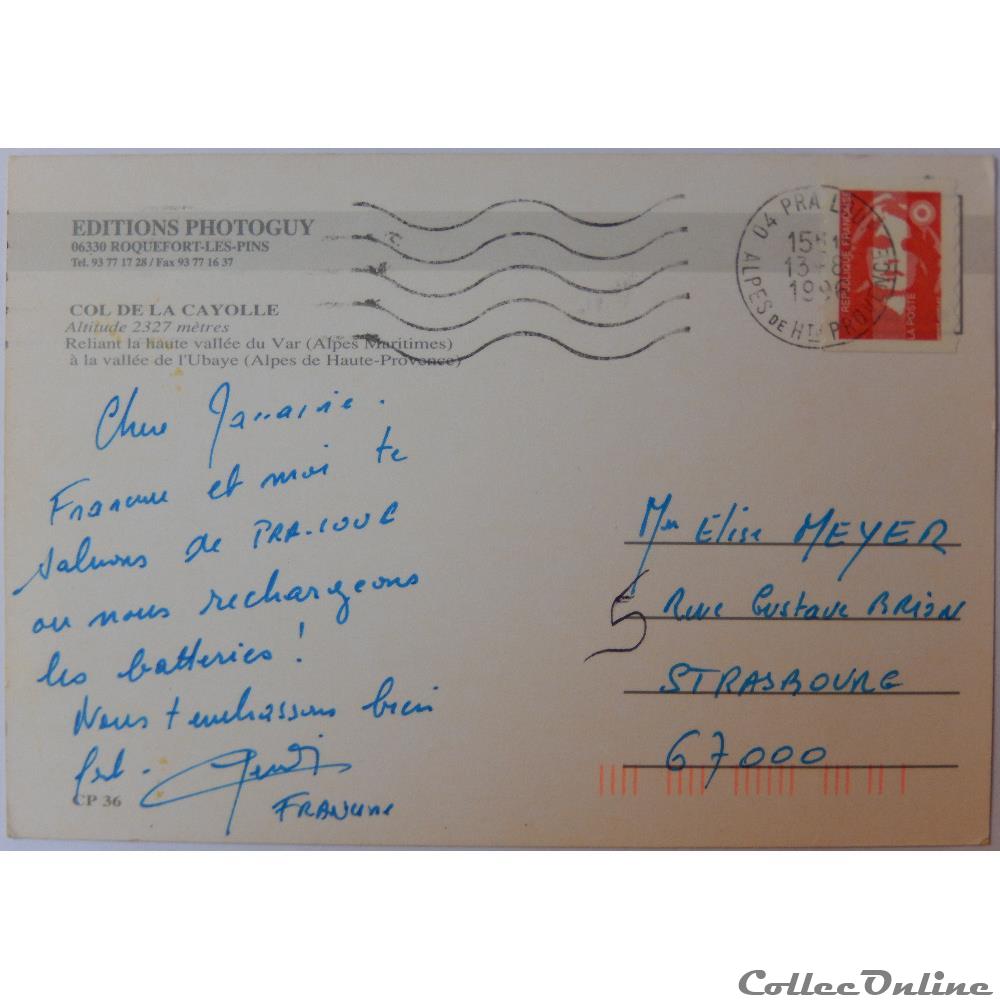 EDITIONS PHOTOGUY
06330 ROQUEFORT-LES-PINS
Tel. 93 77 17 28 / Fax 93 77 16 37
COL DE LA CAYOLLE
Altitude 2327 mètres
Reliant la haute vallée du Var (Alpes Maritimes)
à la vallée de l'Ubaye (Alpes de Haute-Provence)
Chere
Francine et moi te
saluons de PRA-LOUP
ou nous rechargeons
les batteries !
Nous t'embrassons bien
fort.
FRANCINE
CP 36
04 PRA LOUP
13-8
ALPES DE HTE PROVENCE
REPUBLIQUE FRANÇAISE
LA POSTE
Elise MEYER
5 Rue Gustave BRION
STRASBOURG
67000
CollecOnline